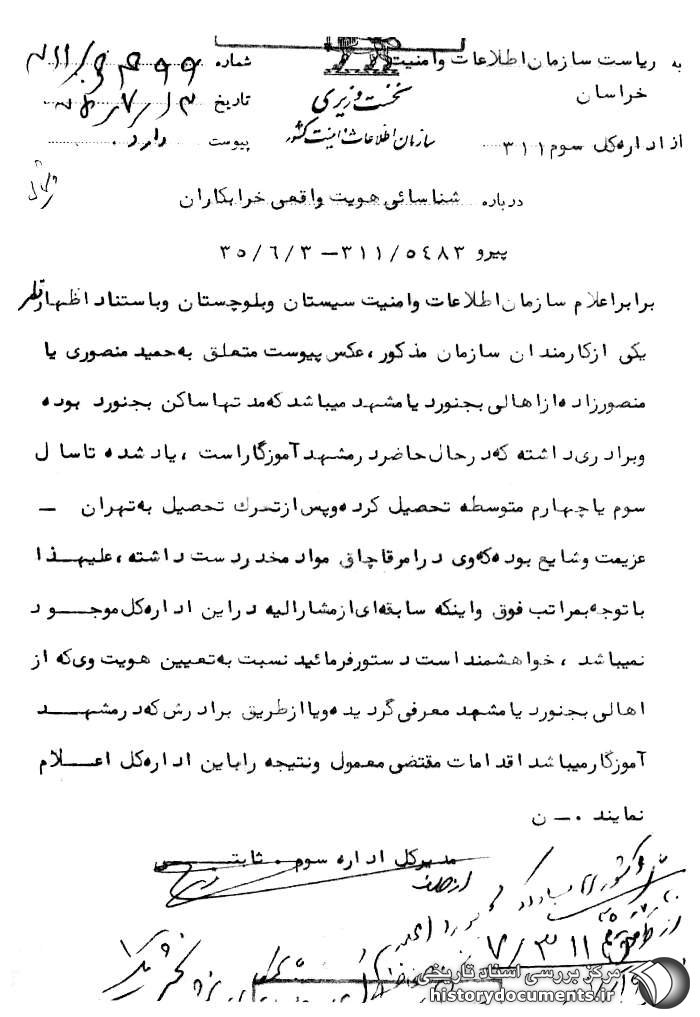 به ریاست سازمان اطلاعات وامنیت
خراسان
از اداره کل سوم ۳۱۱
نخست وزیری
سازمان اطلاعات و امنیت کشور
شماره
تاریخ
پیوست دارد.
درباره شناسائی هویت واقعی خرابکاران
پیرو ۳۱۱/۵۴۸۳ – ۳۵/۶/۳
برابر اعلام سازمان اطلاعات وامنیت سیستان وبلوچستان وباستناد اظهار نظر
یکی ازکارمندان سازمان مذکور، عکس پیوست متعلق به حمید منصوری یا
منصورزاده ازاهالی بجنورد یا مشهد میباشد که مدتها ساکن بجنورد بوده
وبرادری داشته که درحال حاضر درمشهد آموزگار است ، یاد شده تا سال
سوم یا چهارم متوسطه تحصیل کرده وپس ازترک تحصیل به تهران –
عزیمت وشایع بوده که وی درامر قاچاق مواد مخدر دست داشته، علیهذا
با توجه بمراتب فوق واینکه سابقه ای ازمشارالیه دراین اداره کل موجود
نمیباشد ، خواهشمند است دستور فرمائید نسبت به تعیین هویت وی که از
اهالی بجنورد یا مشهد معرفی گردیده ویا ازطریق برادرش که در مشهد
آموزگار میباشد اقدامات مقتضی معمول ونتیجه را باین اداره کل اعلام
نمایند ۰ – ن
مدیرکل اداره سوم . ثابتی
از طرف
۳۱۱
مرکز بررسی اسناد تاریخی
historydocuments.ir